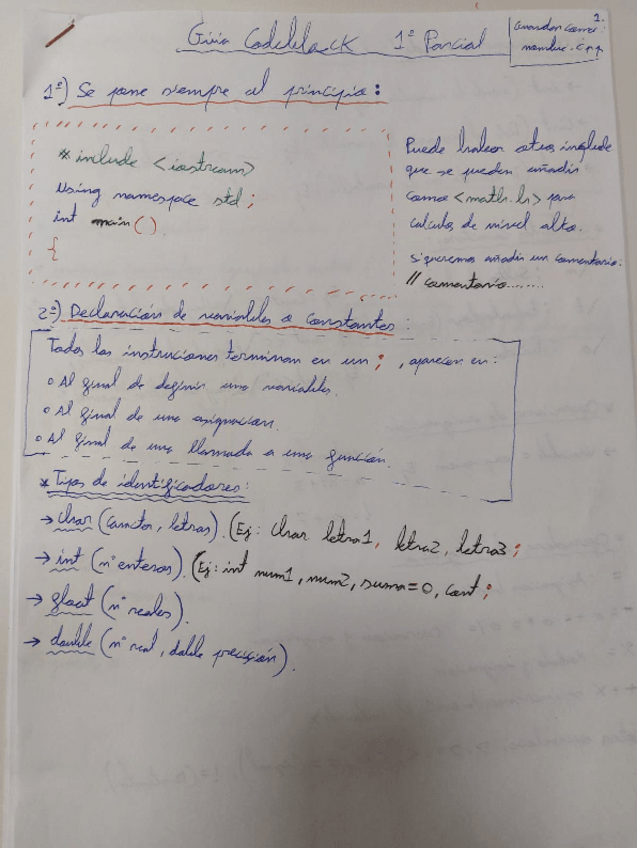 Guia Codeblock 1º Parcial
Guardar como:
nombre.cpp
1.
1º) Se pone siempre al principio:
# include <iostream>
Using namespace std;
int main()
{
Puede haber otros include
que se pueden añadir
como <math.h> para
calculos de nivel alto.
si queremos añadir un comentario:
// comentario.......
2º) Declaración de variables o constantes:
Todas las instruciones terminan en un ; , aparecen en:
o Al final de definir una variables.
o Al final de una asignación.
o Al final de una llamada a una función.
* Tipos de identificadores:
→ char (caracter, letras). (Ej: Char letra1, letra2, letra3;
→ int (nº enteros). (Ej: int num1, num2, suma=0, cont;
→ float (nº reales).
→ double (nº real, doble precisión).